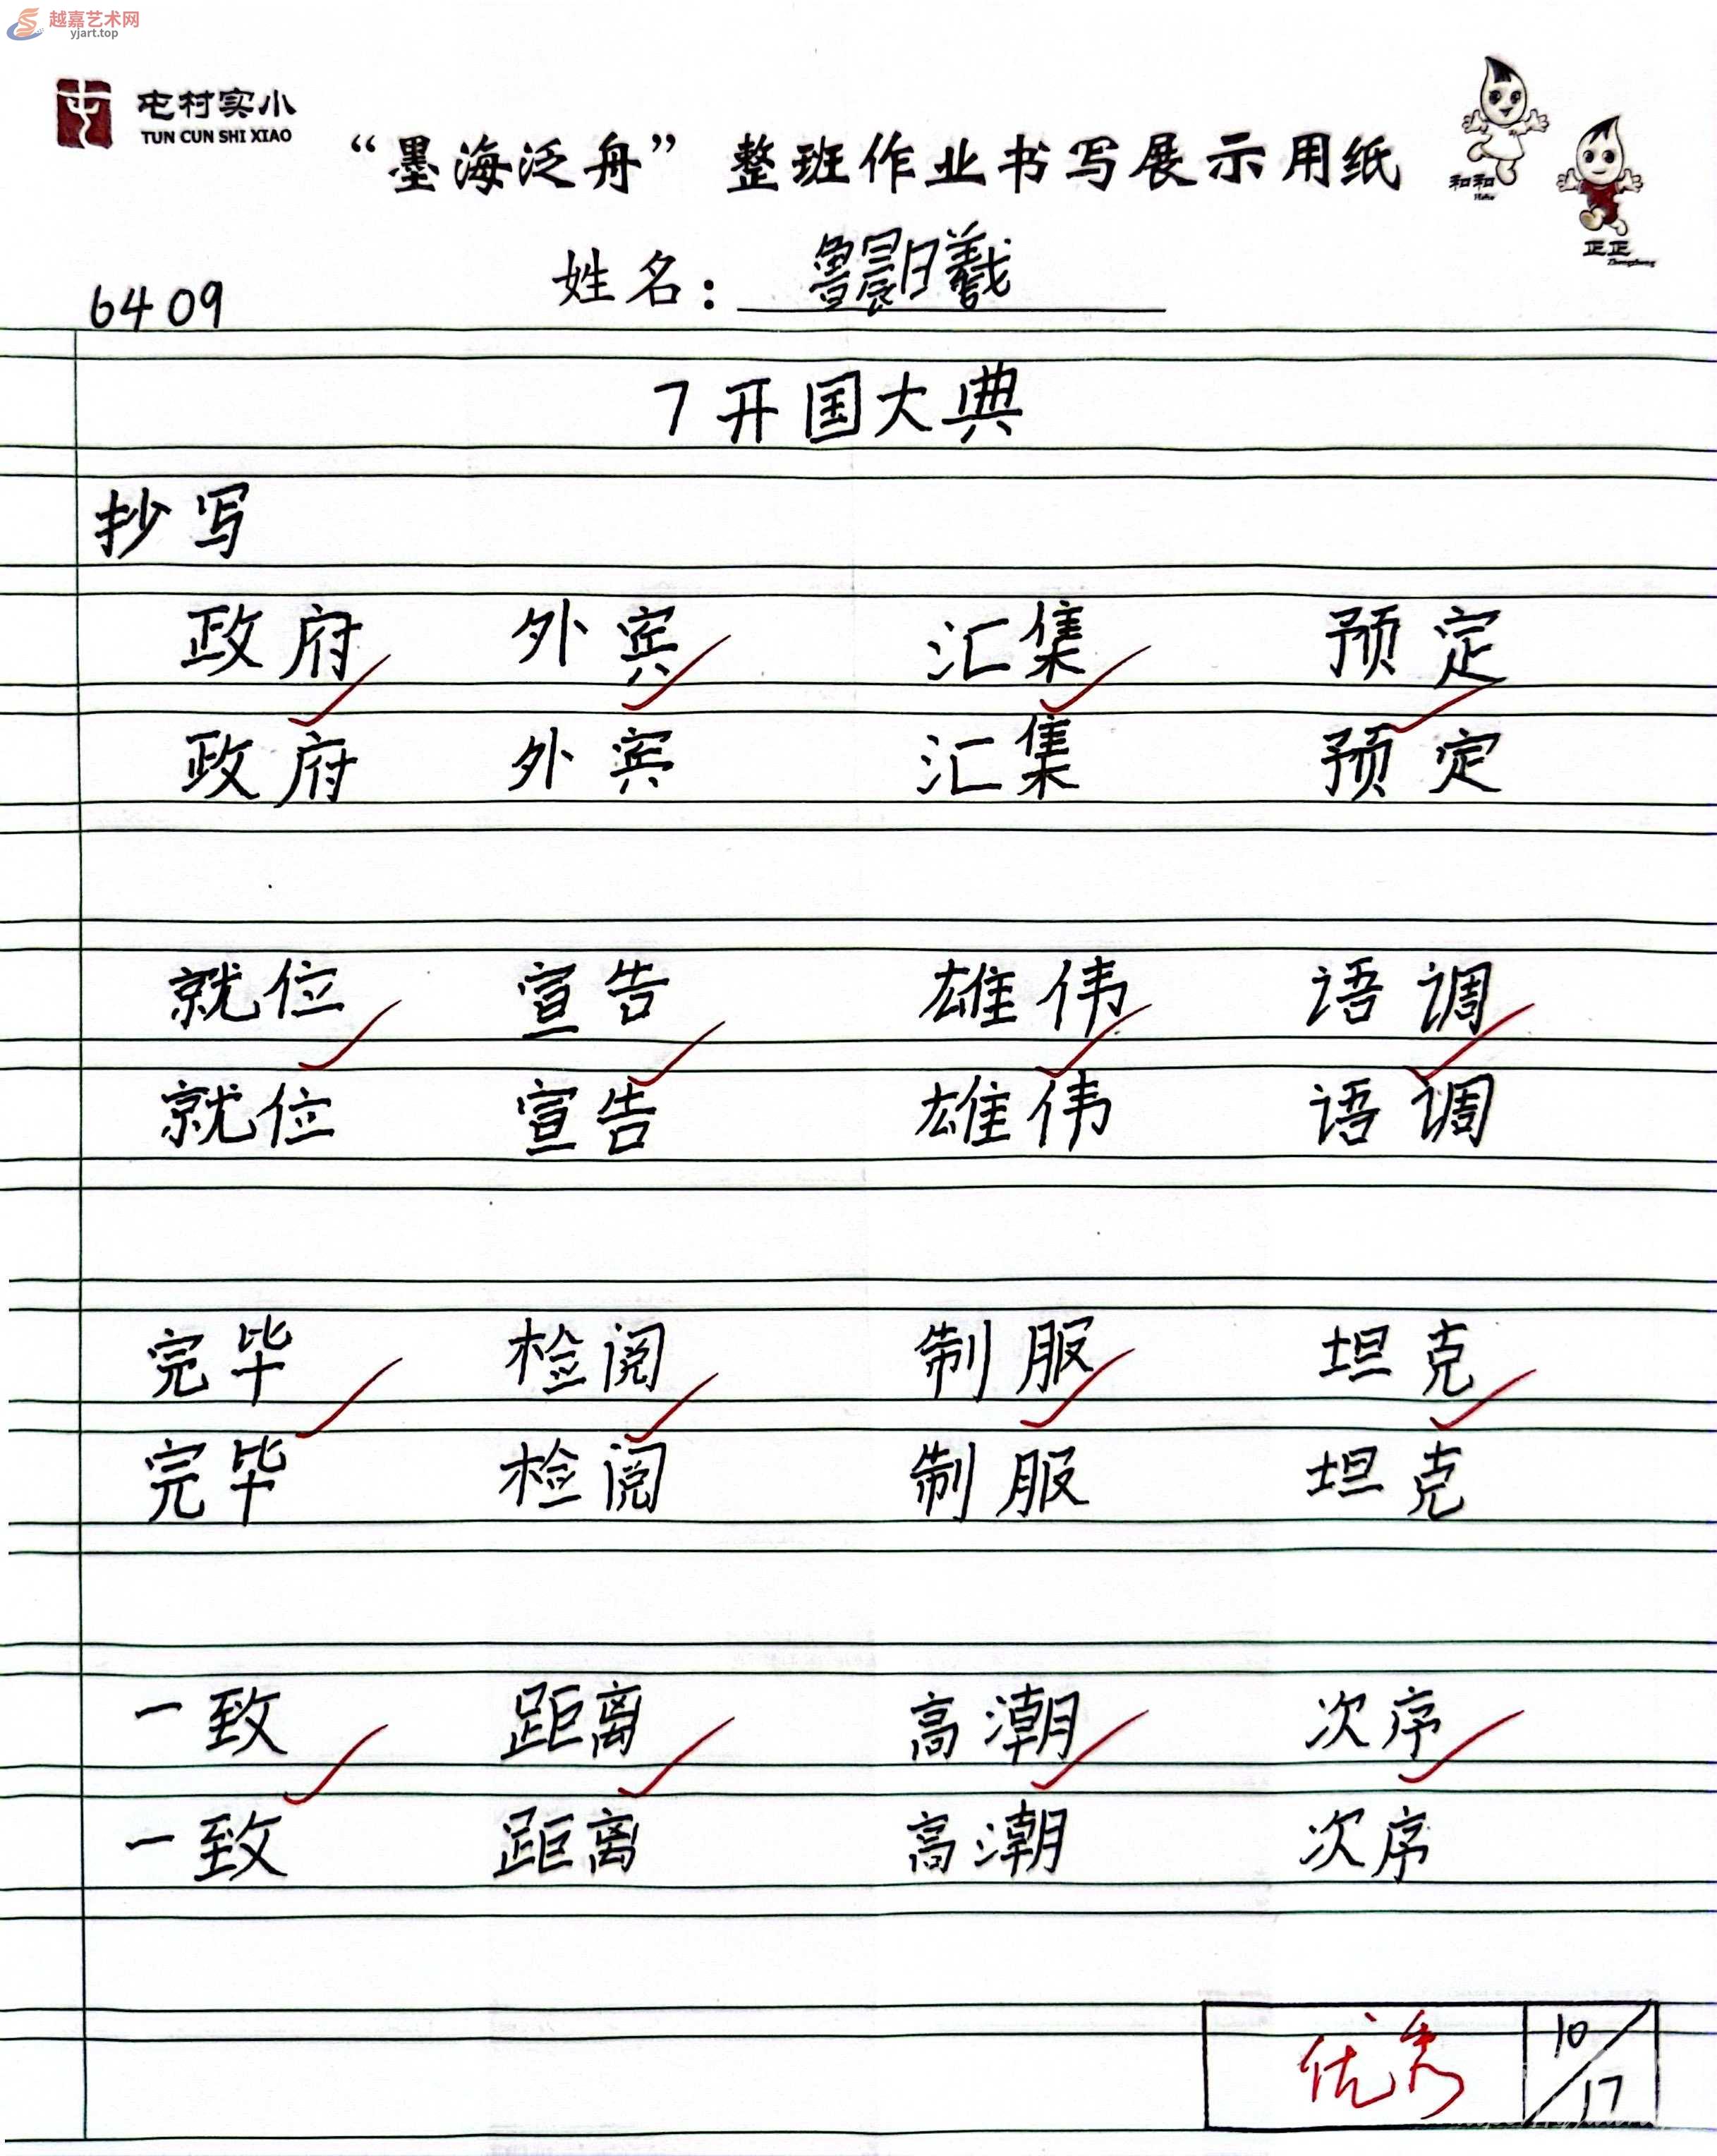 越嘉艺术网
yjart.top
屯村实小
TUN CUN SHI XIAO
“墨海泛舟”整班作业书写展示用纸
和和
Hehe
正正
Zhengzheng
姓名：
6409
7 开国大典
抄写
政府 外宾 汇集 预定
政府 外宾 汇集 预定
就位 宣告 雄伟 语调
就位 宣告 雄伟 语调
完毕 检阅 制服 坦克
完毕 检阅 制服 坦克
一致 距离 高潮 次序
一致 距离 高潮 次序
优秀 10/17